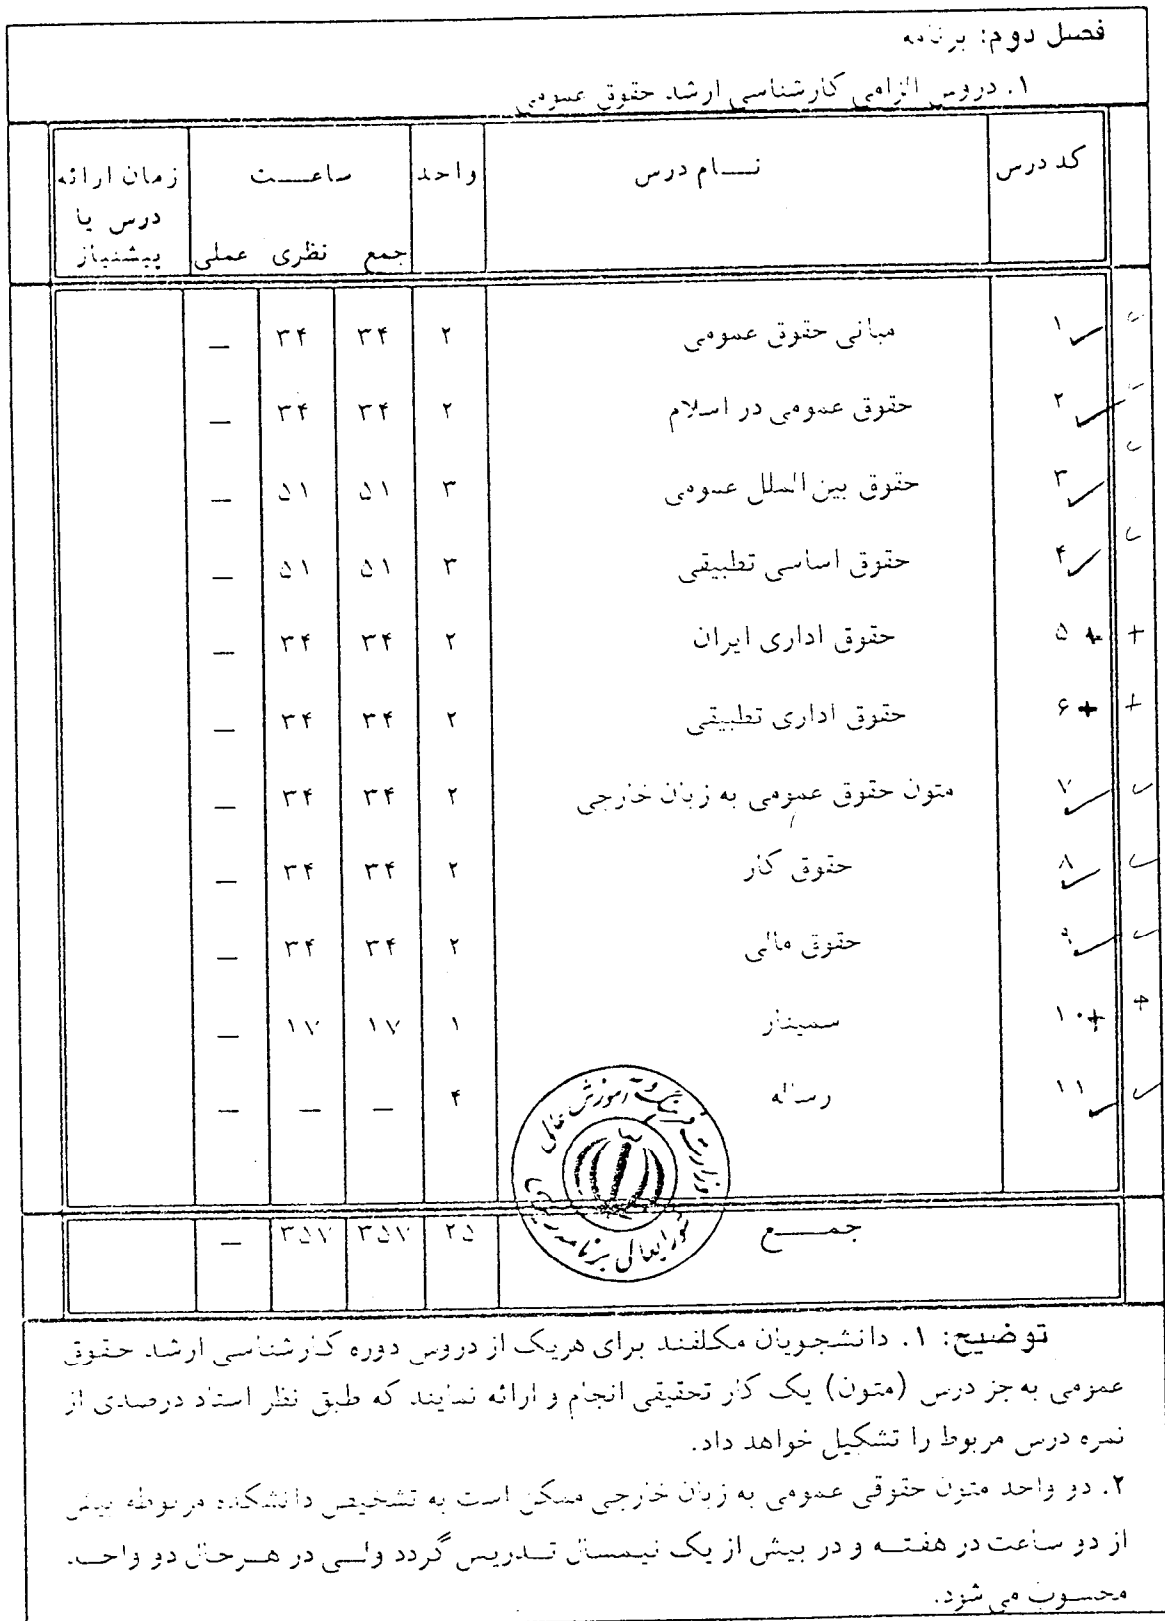 فصل دوم: برنامه
۱. دروس الزامی کارشناسی ارشد حقوق عمومی
کد درس نـــام درس واحد ساعـــت زمان ارائه
درس یا
جمع نظری عملی پیشنیاز
۱ مبانی حقوق عمومی ۲ ۳۴ ۳۴ —
۲ حقوق عمومی در اسلام ۲ ۳۴ ۳۴ —
۳ حقوق بین الملل عمومی ۳ ۵۱ ۵۱ —
۴ حقوق اساسی تطبیقی ۳ ۵۱ ۵۱ —
+ ۵ + حقوق اداری ایران ۲ ۳۴ ۳۴ —
+ ۶ + حقوق اداری تطبیقی ۲ ۳۴ ۳۴ —
۷ متون حقوق عمومی به زبان خارجی ۲ ۳۴ ۳۴ —
۸ حقوق کار ۲ ۳۴ ۳۴ —
۹ حقوق مالی ۲ ۳۴ ۳۴ —
+ ۱۰ + سمینار ۱ ۱۷ ۱۷ —
۱۱ رساله ۴ — — —
وزارت فرهنگ و آموزش عالی
شورایعالی برنامه ریزی
جمـــــع ۲۵ ۳۵۷ ۳۵۷ —
توضیح: ۱. دانشجویان مکلفند برای هریک از دروس دوره کارشناسی ارشد حقوق
عمومی به جز درس (متون) یک کار تحقیقی انجام و ارائه نمایند که طبق نظر استاد درصدی از
نمره درس مربوط را تشکیل خواهد داد.
۲. دو واحد متون حقوقی عمومی به زبان خارجی ممکن است به تشخیص دانشکده مربوطه بیش
از دو ساعت در هفتـــه و در بیش از یک نیمسال تـــدریس گردد ولـــی در هـــرحال دو واحـــد
محسوب می شود.